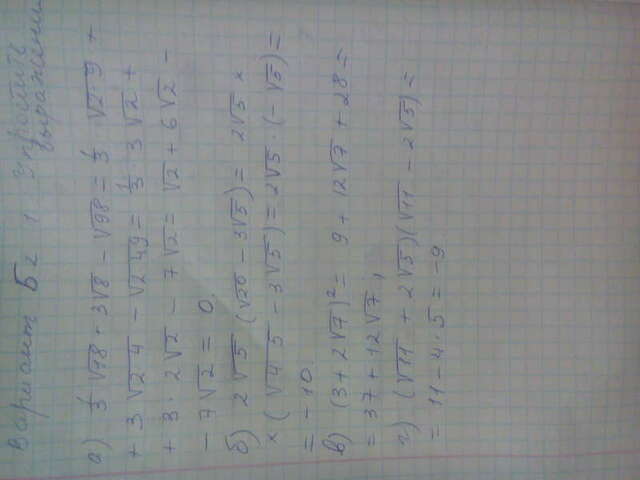 Вариант Б2 1 Упростите
выражения
а) 1/3 √18 + 3√8 − √98 = 1/3 √2·9 +
+ 3 √2·4 − √2·49 = 1/3 · 3 √2 +
+ 3 · 2√2 − 7√2 = √2 + 6√2 −
− 7√2 = 0.
б) 2√5 (√20 − 3√5) = 2√5 ×
× (√4·5 − 3√5) = 2√5 · (−√5) =
= −10.
в) (3 + 2√7)² = 9 + 12√7 + 28 =
= 37 + 12√7,
г) (√11 + 2√5)(√11 − 2√5) =
= 11 − 4·5 = −9